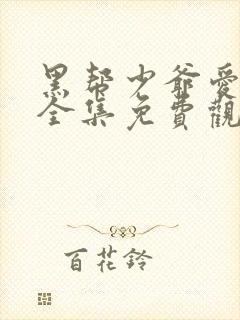 黑帮少爷愛
全集免費觀
百花鈴